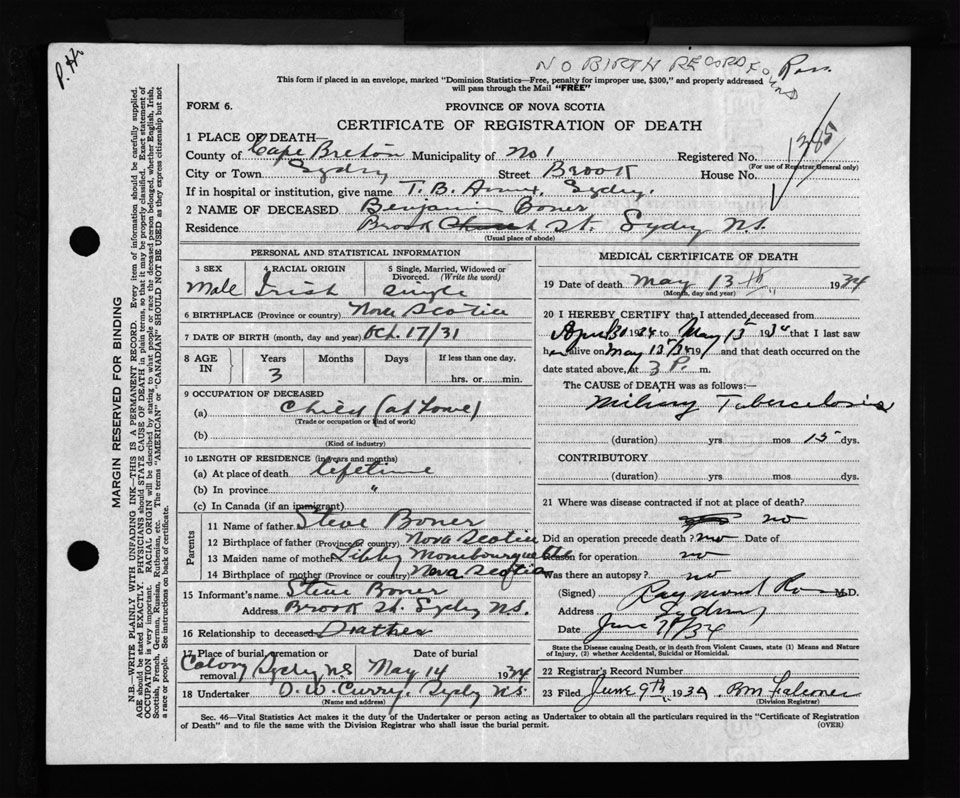 P.H.
NO BIRTH RECORD FOUND
This form if placed in an envelope, marked "Dominion Statistics—Free, penalty for improper use, $300," and properly addressed
will pass through the Mail "FREE"
FORM 6. PROVINCE OF NOVA SCOTIA
CERTIFICATE OF REGISTRATION OF DEATH
1 PLACE OF DEATH—
1385
County of Cape Breton Municipality of No 1 Registered No.
(For use of Registrar General only)
City or Town Sydney Street Brook House No.
If in hospital or institution, give name T. B. Annex, Sydney.
2 NAME OF DECEASED Benjamin Boner
Residence Brook St. Sydney N.S.
(Usual place of abode)
PERSONAL AND STATISTICAL INFORMATION
3 SEX 4 RACIAL ORIGIN 5 Single, Married, Widowed or Divorced. (Write the word)
Male Irish Single
6 BIRTHPLACE (Province or country) Nova Scotia
7 DATE OF BIRTH (month, day and year) Oct. 17/31
8 AGE IN Years Months Days If less than one day,
3 hrs. or min.
9 OCCUPATION OF DECEASED
(a) Child (at home)
(Trade or occupation or kind of work)
(b)
(Kind of industry)
10 LENGTH OF RESIDENCE (in years and months)
(a) At place of death lifetime
(b) In province "
(c) In Canada (if an immigrant)
Parents
11 Name of father Steve Boner
12 Birthplace of father (Province or country) Nova Scotia
13 Maiden name of mother Libby Mombourquette
14 Birthplace of mother (Province or country) Nova Scotia
15 Informant's name Steve Boner
Address Brook St. Sydney N.S.
16 Relationship to deceased
17 Place of burial, cremation or removal Date of burial
Sydney N.S. May 14 1934
18 Undertaker D. W. Curry, Sydney N.S.
(Name and address)
MEDICAL CERTIFICATE OF DEATH
19 Date of death May 13th 1934
(Month, day and year)
20 I HEREBY CERTIFY that I attended deceased from
April 30 1934 to May 13 1934 that I last saw
h alive on May 13/34 191 and that death occurred on the
date stated above, at 3 P. m.
The CAUSE of DEATH was as follows:—
Miliary Tuberculosis
(duration) yrs. mos. 15 dys.
CONTRIBUTORY
(duration) yrs. mos. dys.
21 Where was disease contracted if not at place of death?
no
Did an operation precede death? no Date of
Reason for operation no
Was there an autopsy? no
(Signed) Raymond Ross M.D.
Address Sydney
Date June 7/34
State the Disease causing Death, or in death from Violent Causes, state (1) Means and Nature of Injury, (2) whether Accidental, Suicidal or Homicidal.
22 Registrar's Record Number
23 Filed June 9th 1934 RM Falconer
(Division Registrar)
Sec. 46—Vital Statistics Act makes it the duty of the Undertaker or person acting as Undertaker to obtain all the particulars required in the "Certificate of Registration
of Death" and to file the same with the Division Registrar who shall issue the burial permit. (OVER)
MARGIN RESERVED FOR BINDING
N.B.—WRITE PLAINLY WITH UNFADING INK—THIS IS A PERMANENT RECORD. Every item of information should be carefully supplied.
AGE should be stated EXACTLY. PHYSICIANS should STATE CAUSE OF DEATH in plain terms, so that it may be properly classified. Exact statement of
OCCUPATION is very important. RACIAL ORIGIN will be described by stating to what people or race the deceased person belonged, whether English, Irish,
Scottish, French, German, Russian, Ruthenian, etc. The terms "AMERICAN" or "CANADIAN" SHOULD NOT BE USED as they express citizenship but not
a race or people. See instructions on back of certificate.